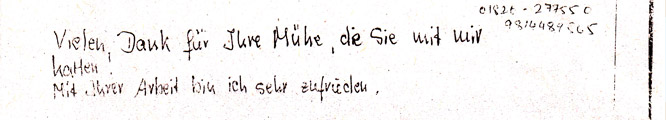 01820 - 277550
9814489565
Vielen, Dank für Ihre Mühe, die Sie mit mir
hatten.
Mit Ihrer Arbeit bin ich sehr zufrieden.